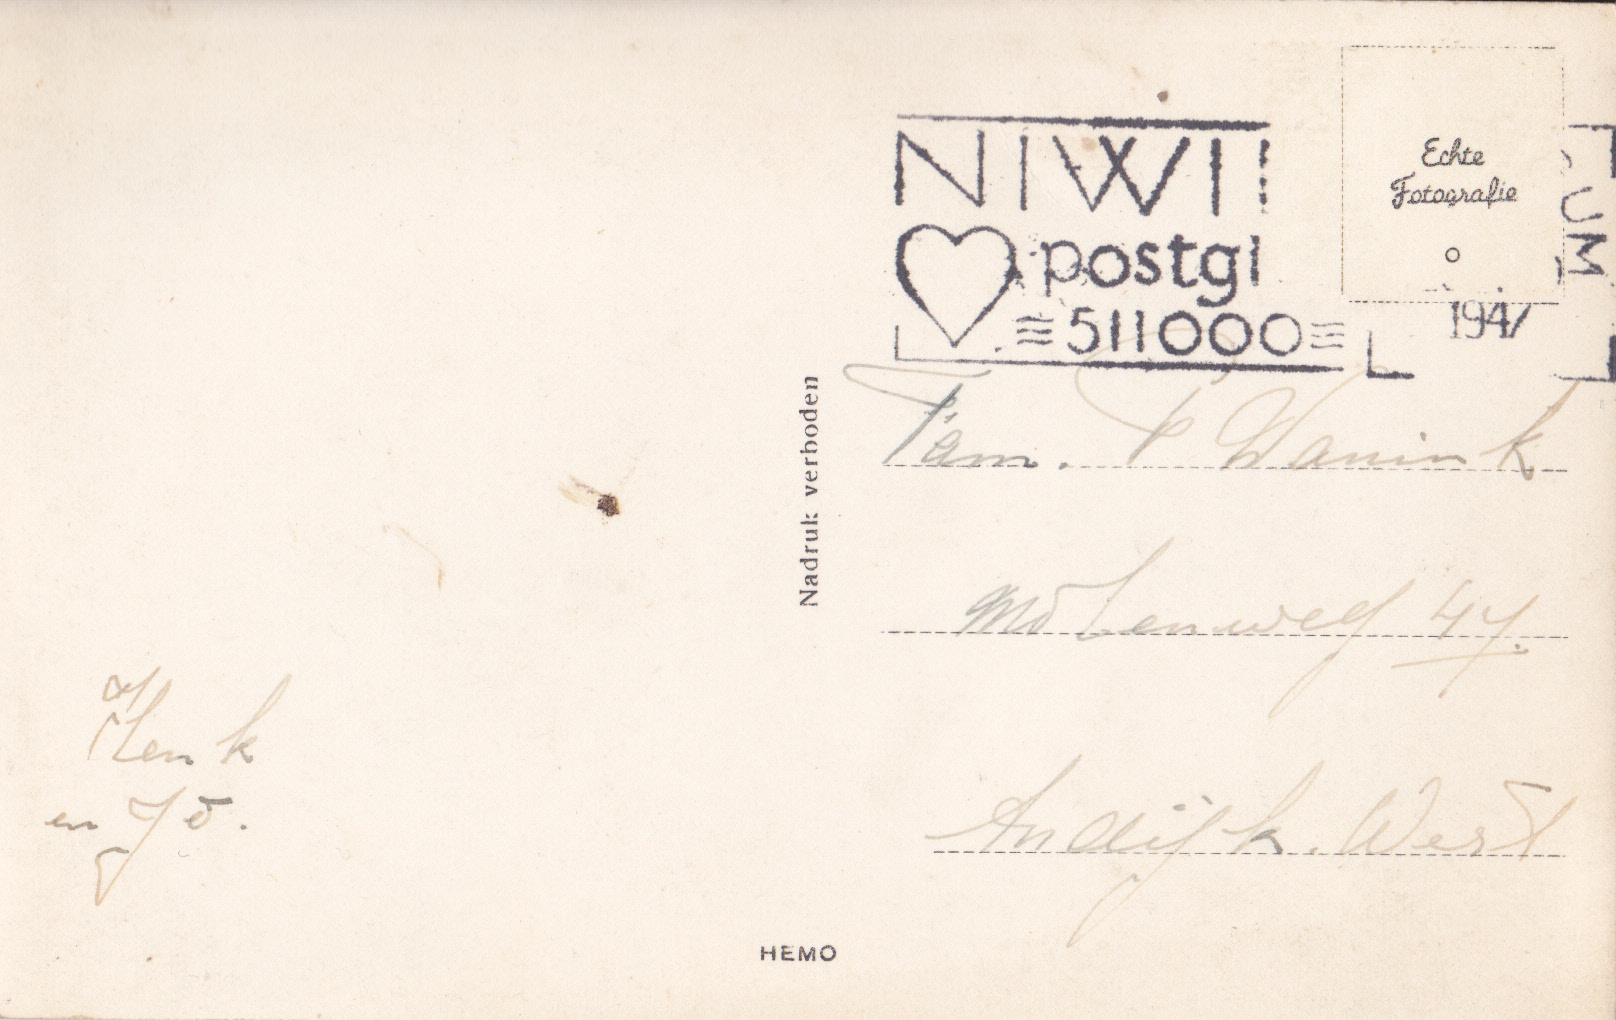 NIWI
postgi
511000
UM
1947
Echte
Fotografie
Nadruk verboden
Fam. P Wanink
Molenweg 47.
Andijk. West
Henk
en Jo.
HEMO